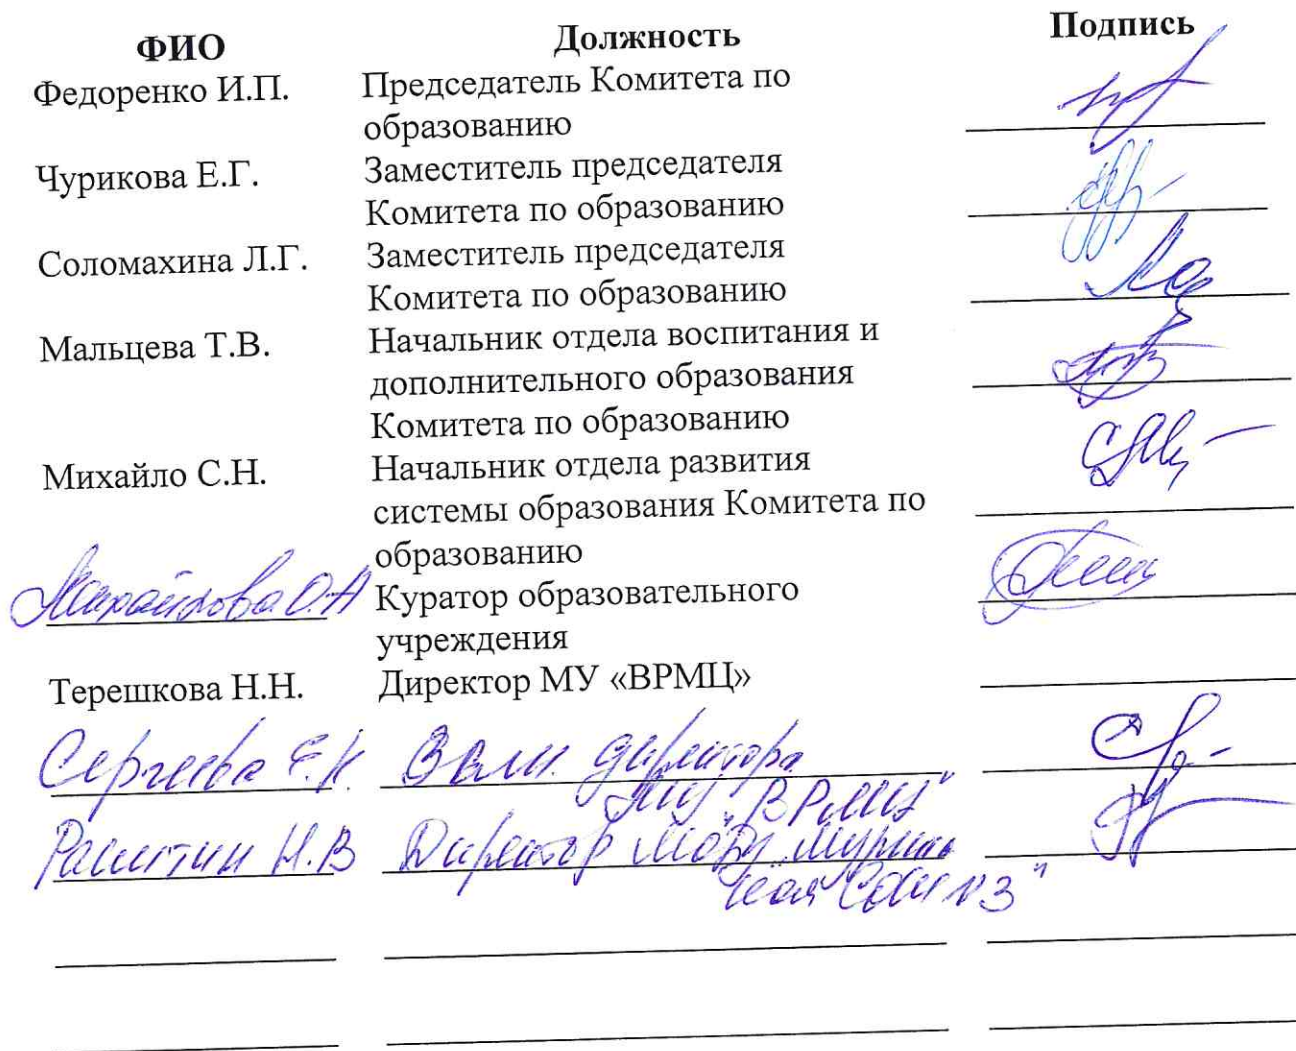 ФИО Должность Подпись
Федоренко И.П. Председатель Комитета по
образованию
Чурикова Е.Г. Заместитель председателя
Комитета по образованию
Соломахина Л.Г. Заместитель председателя
Комитета по образованию
Мальцева Т.В. Начальник отдела воспитания и
дополнительного образования
Комитета по образованию
Михайло С.Н. Начальник отдела развития
системы образования Комитета по
образованию
Михайлова О.А Куратор образовательного
учреждения
Терешкова Н.Н. Директор МУ «ВРМЦ»
Сергеева Е.К. Зам. директора
МУ "ВРМЦ"
Ракитин Н.В Директор МОБУ
СОШ №3"